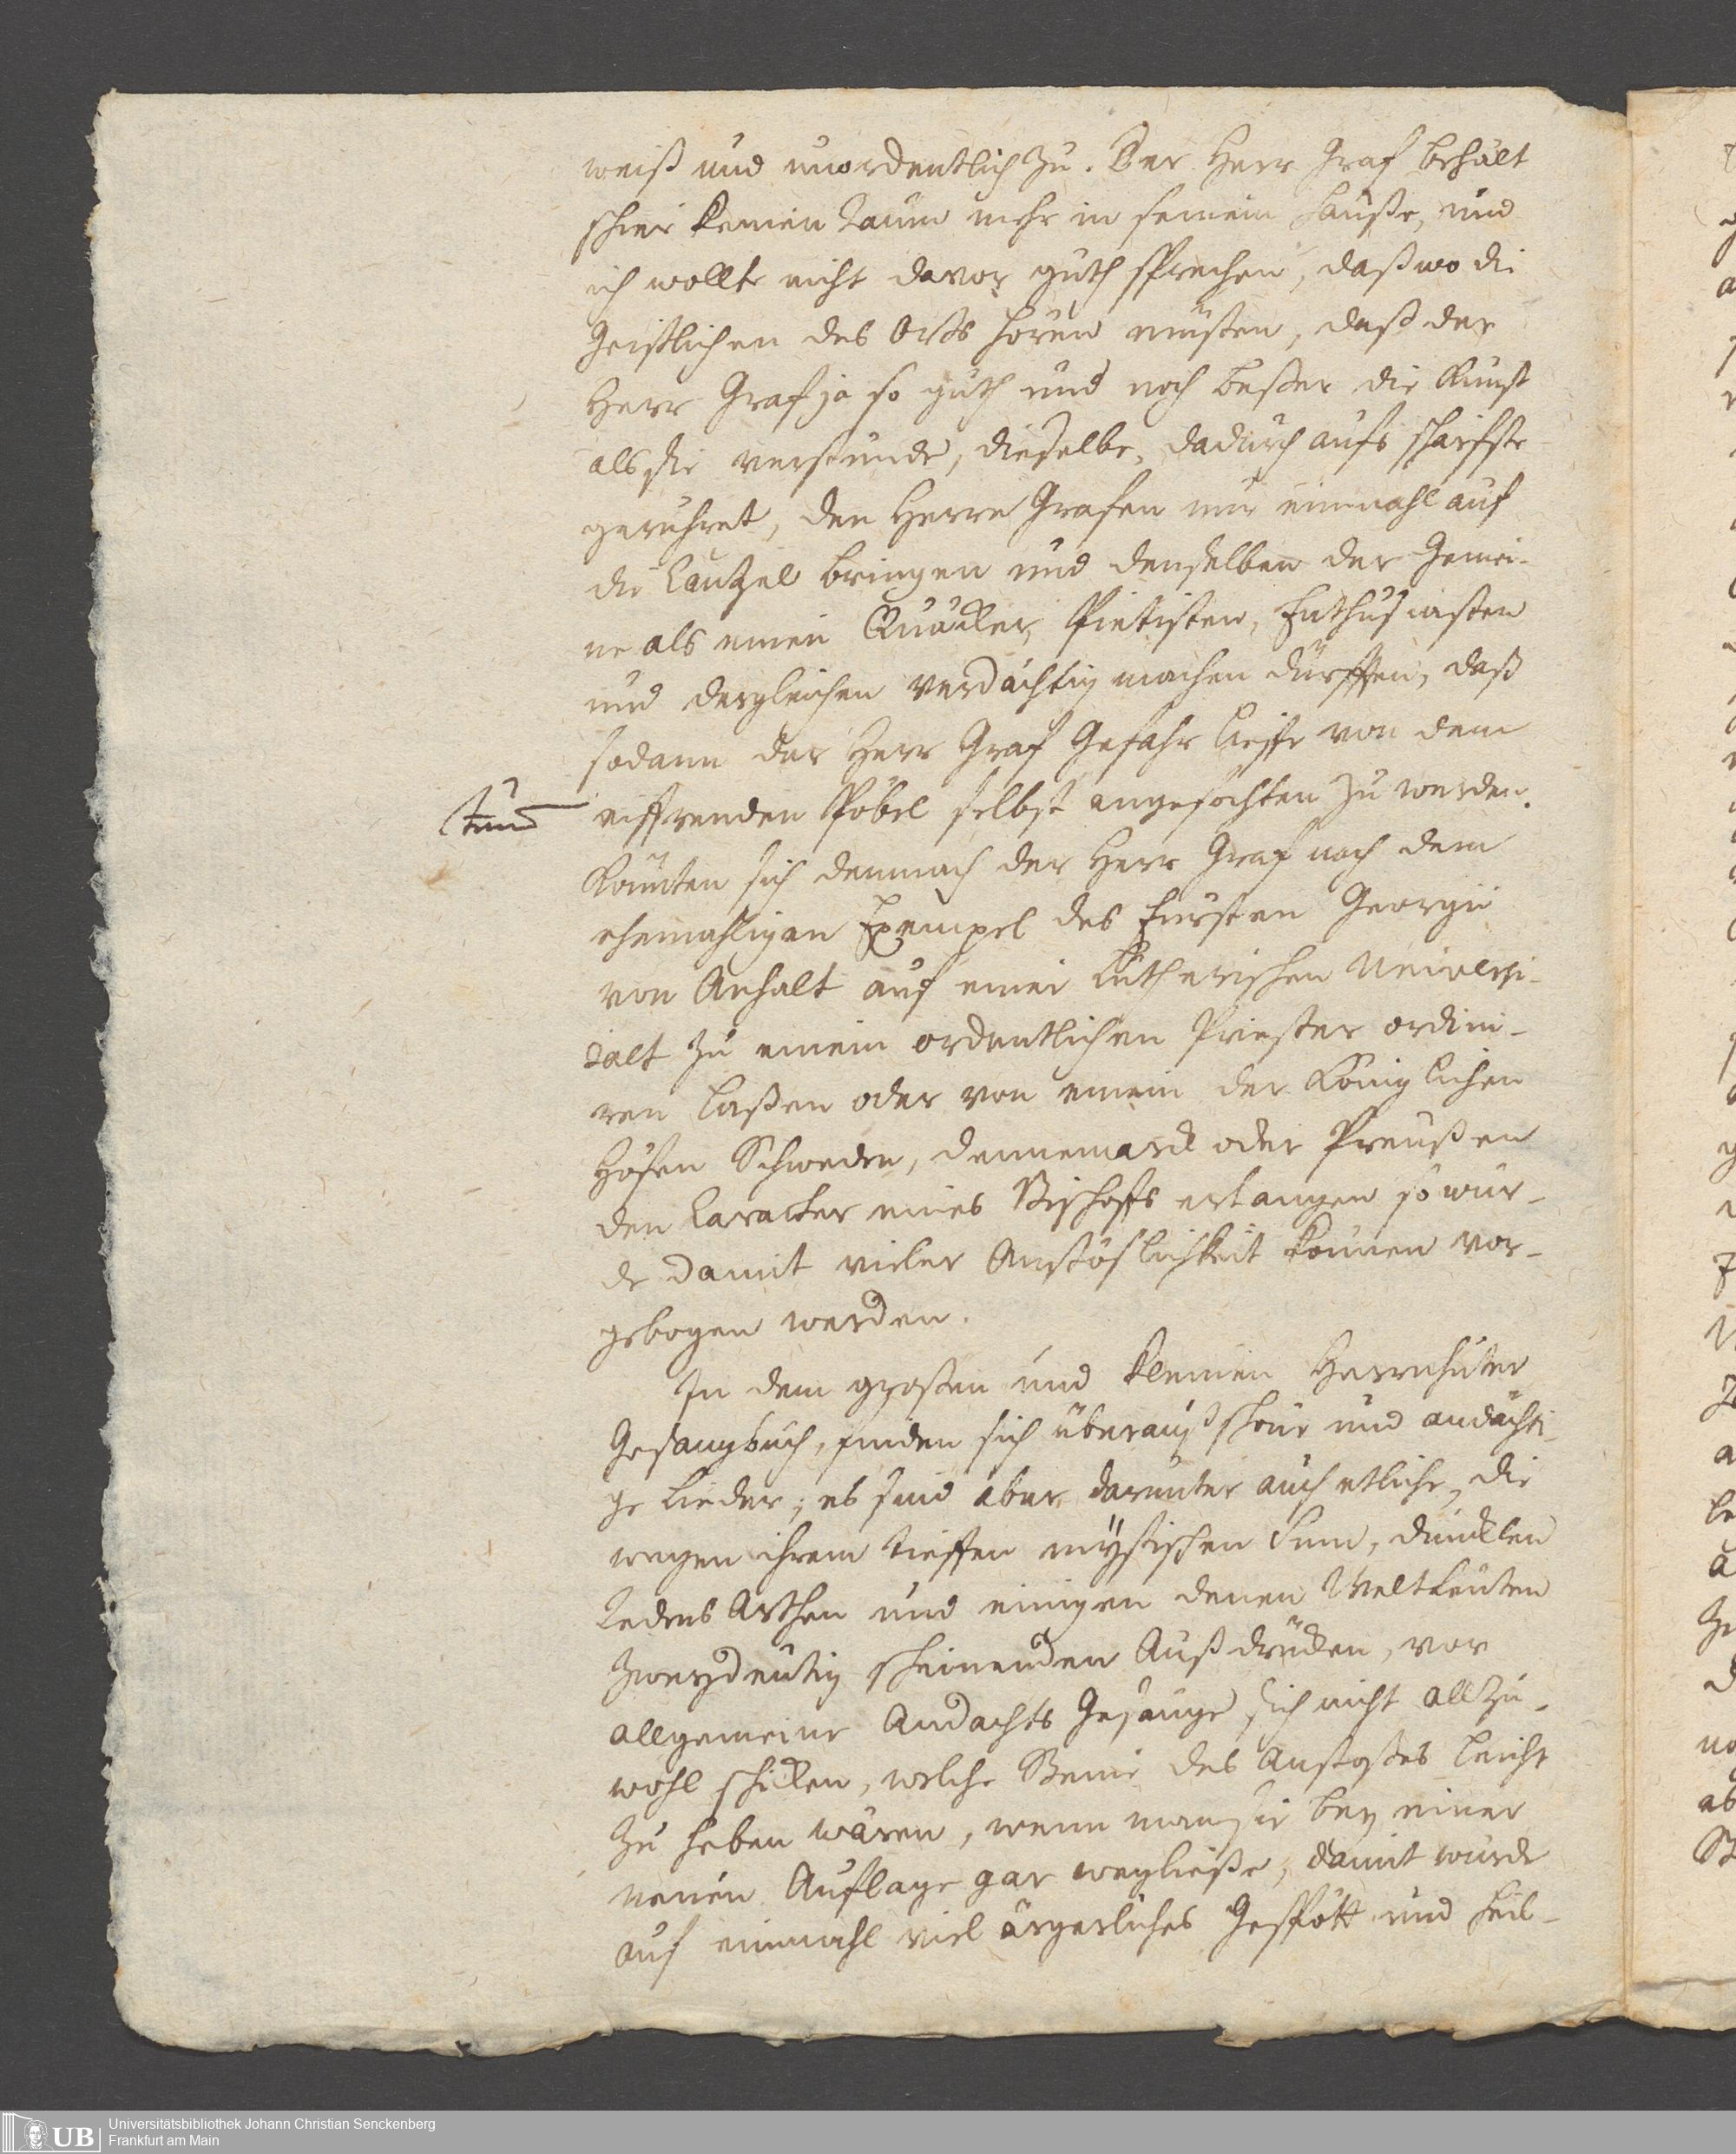 weiß und unordentlich zu. Der Herr Graf behält
schier keinen Raum mehr in seinem Hauße, und
ich wollte nicht davor guth sprechen, daß wo die
Geistlichen des Orts hören müsten, daß der
Herr Graf ja so guth und noch beßer die Kunst
als sie verstünde, dieselbe, dadurch aufs schärfste
gerühret, den Herrn Grafen nur einmahl auf
die Cantzel bringen und denselben der Gemei-
ne als einen Quäcker, Pietisten, Enthusiasten
und dergleichen verdächtig machen dürfften, daß
sodann der Herr Graf Gefahr lieffe von dem
eiffrenden Pöbel selbst angefochten zu werden.
Könnten sich demnach der Herr Graf nach dem
ehemahligen Exempel des Fürsten Georgii
von Anhalt auf einer Lutherischen Universi-
taet zu einem ordentlichen Priester ordini-
ren laßen oder von einem der Königlichen
Höfen Schweden, Dennemarck oder Preußen
den Caracter eines Bischoffs erlangen so wür-
de damit vieler Anstößlichkeit können vor-
gebogen werden.
In dem großen und kleinen Herrnhuter
Gesangbuch, finden sich überauß schöne und andächti-
ge Lieder; es sind aber darunter auch etliche, die
wegen ihrem tieffen mystischen Sinn, dunklen
Redens Arthen und einigen denen Weltleuten
zweydeutig scheinenden Außdrücken, vor
allgemeine Andachts Gesänge sich nicht allzu-
wohl schicken, welche Steine des Anstoßes leicht
zu heben wären, wenn man sie bey einer
neuen Auflage gar wegließe, damit würde
auf einmahl viel ärgerliches Gespött und heil-
Universitätsbibliothek Johann Christian Senckenberg
Frankfurt am Main
UB